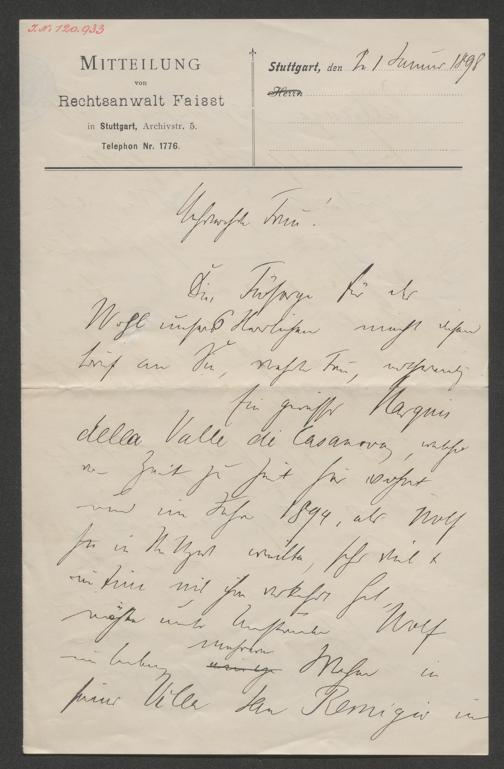 I.N. 120.933
MITTEILUNG
von
Rechtsanwalt Faisst
in Stuttgart, Archivstr. 5.
Telephon Nr. 1776.
Stuttgart, den 21 Januar 1898
Herrn
Verehrteste Frau!
Die Fürsorge für das
Wohl unseres Herrlichen macht diesen
Brief an Sie, verehrte Frau, nothwendig.
Ein gewisser Marquis
della Valle di Casanova, welcher
von Zeit zu Zeit hier wohnt
und im Jahr 1894, als Wolf
hier in Stuttgart weilte, sehr viel &
intim mit ihm verkehrt hat,
möchte unter Umständen Wolf
mehrere
einige Wochen in
seiner Villa San Remigio in